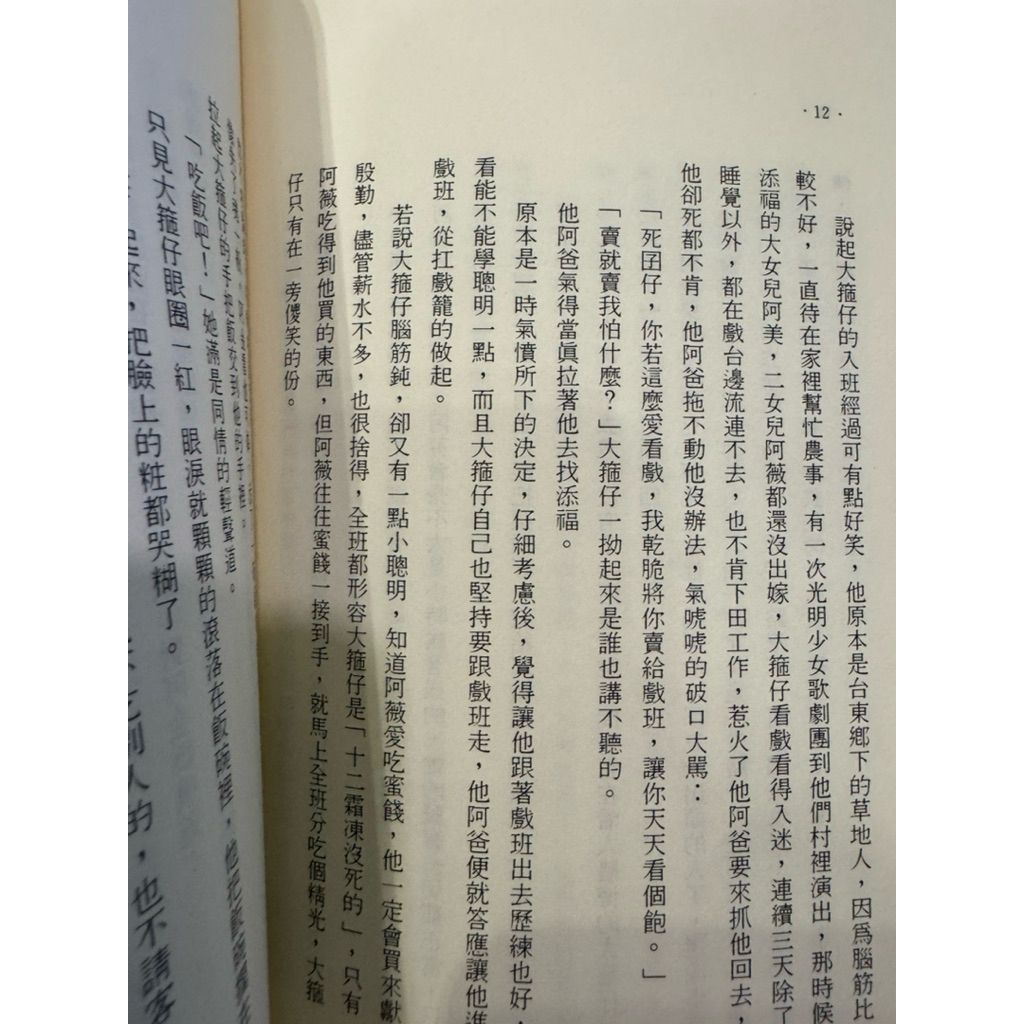 ·12·
說起大箍仔的入班經過可有點好笑，他原本是台東鄉下的草地人，因爲腦筋比
較不好，一直待在家裡幫忙農事，有一次光明少女歌劇團到他們村裡演出，那時候
添福的大女兒阿美，二女兒阿薇都還沒出嫁，大箍仔看戲看得入迷，連續三天除了
睡覺以外，都在戲台邊流連不去，也不肯下田工作，惹火了他阿爸要來抓他回去，
他卻死都不肯，他阿爸拖不動他沒辦法，氣唬唬的破口大駡：
「死囝仔，你若這麼愛看戲，我乾脆將你賣給戲班，讓你天天看個飽。」
「賣就賣我怕什麼？」大箍仔一拗起來是誰也講不聽的。
他阿爸氣得當眞拉著他去找添福。
原本是一時氣憤所下的決定，仔細考慮後，覺得讓他跟著戲班出去歷練也好，
看能不能學聰明一點，而且大箍仔自己也堅持要跟戲班走，他阿爸便就答應讓他進
戲班，從扛戲籠的做起。
若說大箍仔腦筋鈍，卻又有一點小聰明，知道阿薇愛吃蜜餞，他一定會買來獻
殷勤，儘管薪水不多，也很捨得，全班都形容大箍仔是「十二霜凍沒死的」，只有
阿薇吃得到他買的東西，但阿薇往往蜜餞一接到手，就馬上全班分吃個精光，大箍
仔只有在一旁傻笑的份。
拉起大箍仔的手把飯交到他的手裡。
「吃飯吧！」她滿是同情的輕聲道。
只見大箍仔眼圈一紅，眼淚就顆顆的滾落在飯碗裡，他把飯碗
起來，把臉上的粧都哭糊了。
別人的，也不請客